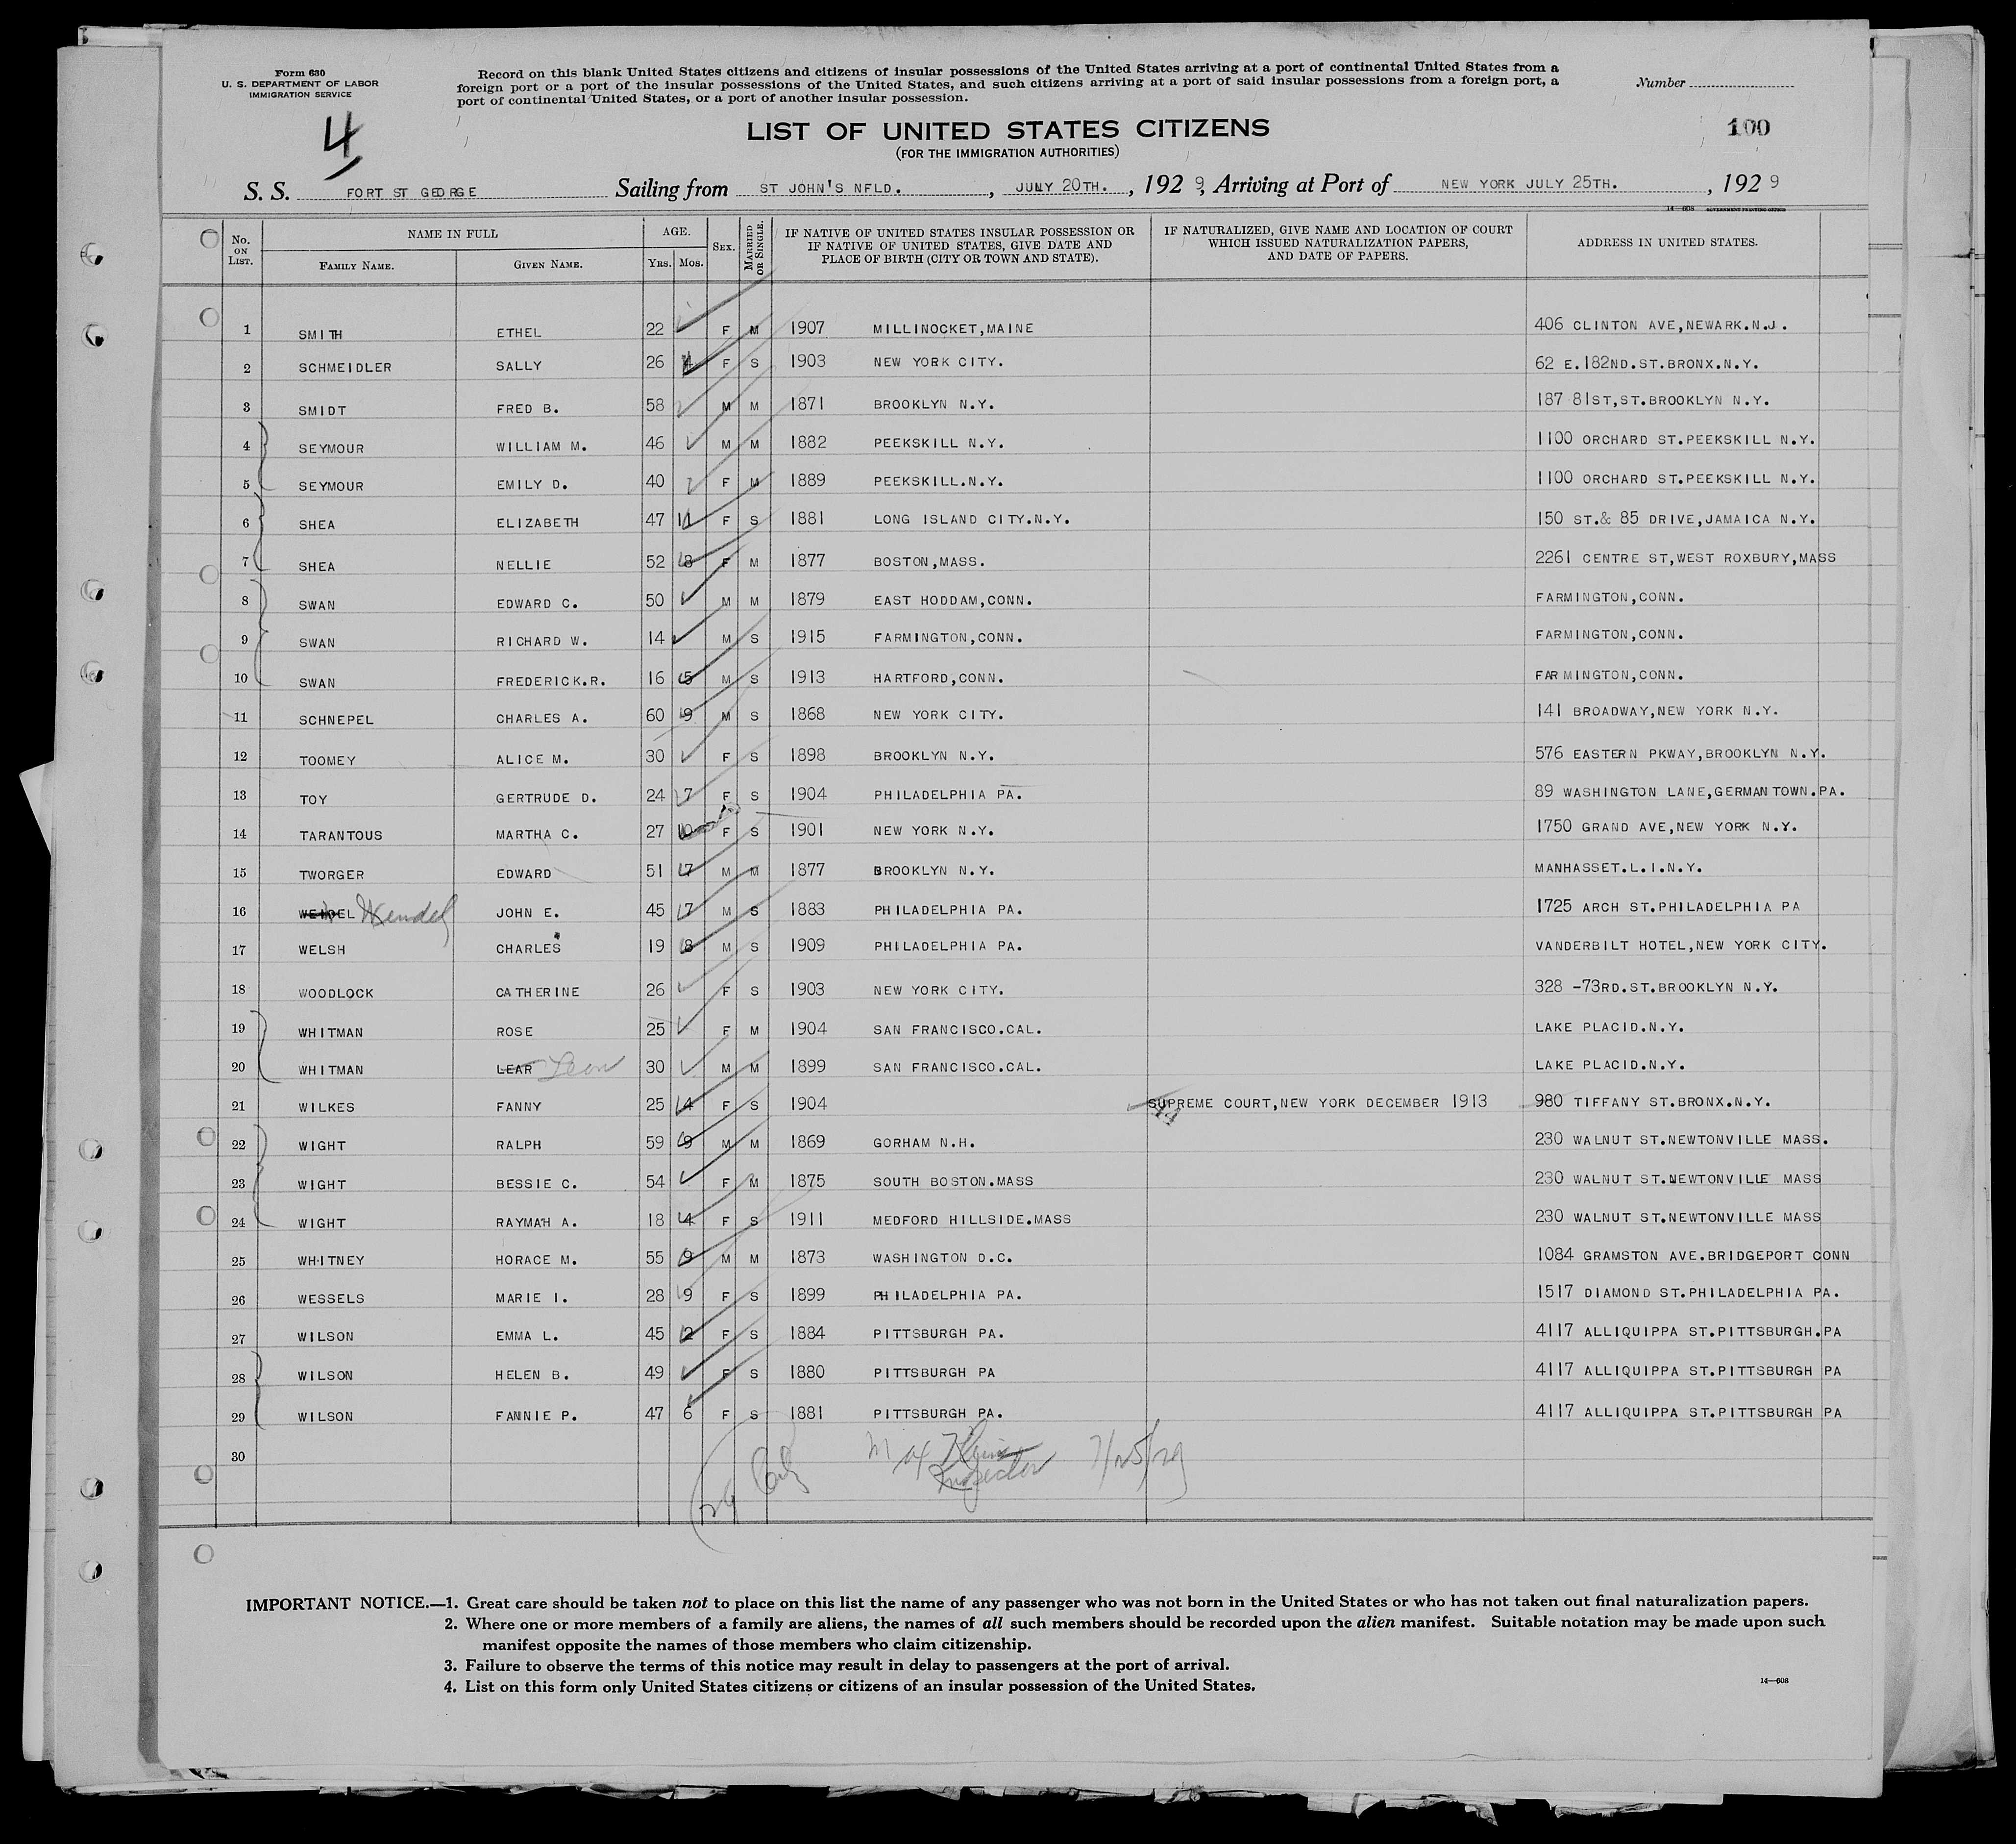 Form 630
U. S. DEPARTMENT OF LABOR
IMMIGRATION SERVICE
Record on this blank United States citizens and citizens of insular possessions of the United States arriving at a port of continental United States from a
foreign port or a port of the insular possessions of the United States, and such citizens arriving at a port of said insular possessions from a foreign port, a
port of continental United States, or a port of another insular possession.
Number
4
LIST OF UNITED STATES CITIZENS
100
(FOR THE IMMIGRATION AUTHORITIES)
S. S. FORT ST GEORGE Sailing from ST JOHN'S NFLD. , JULY 20TH. , 1929, Arriving at Port of NEW YORK JULY 25TH. , 1929
14—608 GOVERNMENT PRINTING OFFICE
No. ON LIST. NAME IN FULL FAMILY NAME. GIVEN NAME. AGE. YRS. MOS. SEX. MARRIED OR SINGLE. IF NATIVE OF UNITED STATES INSULAR POSSESSION OR IF NATIVE OF UNITED STATES, GIVE DATE AND PLACE OF BIRTH (CITY OR TOWN AND STATE). IF NATURALIZED, GIVE NAME AND LOCATION OF COURT WHICH ISSUED NATURALIZATION PAPERS, AND DATE OF PAPERS. ADDRESS IN UNITED STATES.
1 SMITH ETHEL 22 F M 1907 MILLINOCKET,MAINE 406 CLINTON AVE,NEWARK.N.J.
2 SCHMEIDLER SALLY 26 F S 1903 NEW YORK CITY. 62 E.182ND.ST.BRONX.N.Y.
3 SMIDT FRED B. 58 M M 1871 BROOKLYN N.Y. 187 81ST,ST.BROOKLYN N.Y.
4 SEYMOUR WILLIAM M. 46 M M 1882 PEEKSKILL N.Y. 1100 ORCHARD ST.PEEKSKILL N.Y.
5 SEYMOUR EMILY D. 40 F M 1889 PEEKSKILL.N.Y. 1100 ORCHARD ST.PEEKSKILL N.Y.
6 SHEA ELIZABETH 47 11 F S 1881 LONG ISLAND CITY.N.Y. 150 ST.& 85 DRIVE,JAMAICA N.Y.
7 SHEA NELLIE 52 3 F M 1877 BOSTON,MASS. 2261 CENTRE ST,WEST ROXBURY,MASS
8 SWAN EDWARD C. 50 M M 1879 EAST HODDAM,CONN. FARMINGTON,CONN.
9 SWAN RICHARD W. 14 M S 1915 FARMINGTON,CONN. FARMINGTON,CONN.
10 SWAN FREDERICK.R. 16 5 M S 1913 HARTFORD,CONN. FARMINGTON,CONN.
11 SCHNEPEL CHARLES A. 60 9 M S 1868 NEW YORK CITY. 141 BROADWAY,NEW YORK N.Y.
12 TOOMEY ALICE M. 30 F S 1898 BROOKLYN N.Y. 576 EASTERN PKWAY,BROOKLYN N.Y.
13 TOY GERTRUDE D. 24 7 F S 1904 PHILADELPHIA PA. 89 WASHINGTON LANE,GERMANTOWN.PA.
14 TARANTOUS MARTHA C. 27 10 F S 1901 NEW YORK N.Y. 1750 GRAND AVE,NEW YORK N.Y.
15 TWORGER EDWARD 51 7 M M 1877 BROOKLYN N.Y. MANHASSET.L.I.N.Y.
16 WEIDEL Wendel JOHN E. 45 7 M S 1883 PHILADELPHIA PA. 1725 ARCH ST.PHILADELPHIA PA
17 WELSH CHARLES 19 8 M S 1909 PHILADELPHIA PA. VANDERBILT HOTEL,NEW YORK CITY.
18 WOODLOCK CATHERINE 26 F S 1903 NEW YORK CITY. 328 -73RD.ST.BROOKLYN N.Y.
19 WHITMAN ROSE 25 F M 1904 SAN FRANCISCO.CAL. LAKE PLACID.N.Y.
20 WHITMAN LEAR Leon 30 M M 1899 SAN FRANCISCO.CAL. LAKE PLACID.N.Y.
21 WILKES FANNY 25 4 F S 1904 SUPREME COURT,NEW YORK DECEMBER 1913 980 TIFFANY ST.BRONX.N.Y.
22 WIGHT RALPH 59 9 M M 1869 GORHAM N.H. 230 WALNUT ST.NEWTONVILLE MASS.
23 WIGHT BESSIE C. 54 F M 1875 SOUTH BOSTON.MASS 230 WALNUT ST.NEWTONVILLE MASS
24 WIGHT RAYMAH A. 18 4 F S 1911 MEDFORD HILLSIDE.MASS 230 WALNUT ST.NEWTONVILLE MASS
25 WHITNEY HORACE M. 55 9 M M 1873 WASHINGTON D.C. 1084 GRAMSTON AVE.BRIDGEPORT CONN
26 WESSELS MARIE I. 28 9 F S 1899 PHILADELPHIA PA. 1517 DIAMOND ST.PHILADELPHIA PA.
27 WILSON EMMA L. 45 2 F S 1884 PITTSBURGH PA. 4117 ALLIQUIPPA ST.PITTSBURGH.PA
28 WILSON HELEN B. 49 F S 1880 PITTSBURGH PA 4117 ALLIQUIPPA ST.PITTSBURGH PA
29 WILSON FANNIE P. 47 6 F S 1881 PITTSBURGH PA. 4117 ALLIQUIPPA ST.PITTSBURGH PA
30
29 Inspector 7/25/29
IMPORTANT NOTICE.—1. Great care should be taken not to place on this list the name of any passenger who was not born in the United States or who has not taken out final naturalization papers.
2. Where one or more members of a family are aliens, the names of all such members should be recorded upon the alien manifest. Suitable notation may be made upon such
manifest opposite the names of those members who claim citizenship.
3. Failure to observe the terms of this notice may result in delay to passengers at the port of arrival.
4. List on this form only United States citizens or citizens of an insular possession of the United States.
14—608